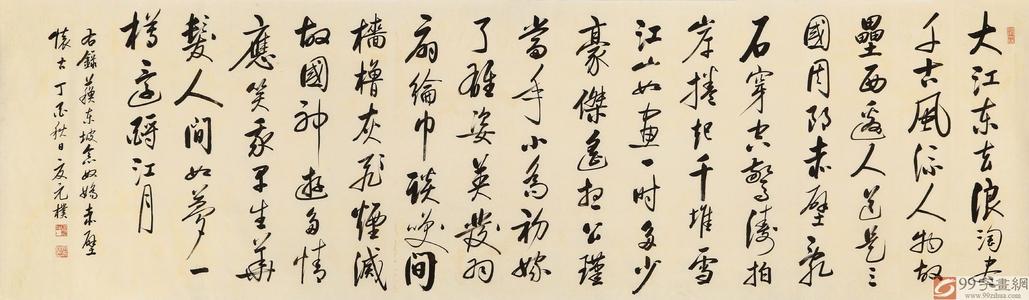 大江东去浪淘尽
千古風流人物故
壘西邊人道是三
國周郎赤壁亂
石穿空驚濤拍
岸捲起千堆雪
江山如畫一時多少
豪傑遙想公瑾
當年小喬初嫁
了雄姿英發羽
扇綸巾談笑間
檣櫓灰飛煙滅
故國神遊多情
應笑我早生華
髮人間如夢一
樽還酹江月
右錄蘇东坡念奴嬌赤壁
懷古丁酉秋日元樸
99字畫網
www.99zihua.com